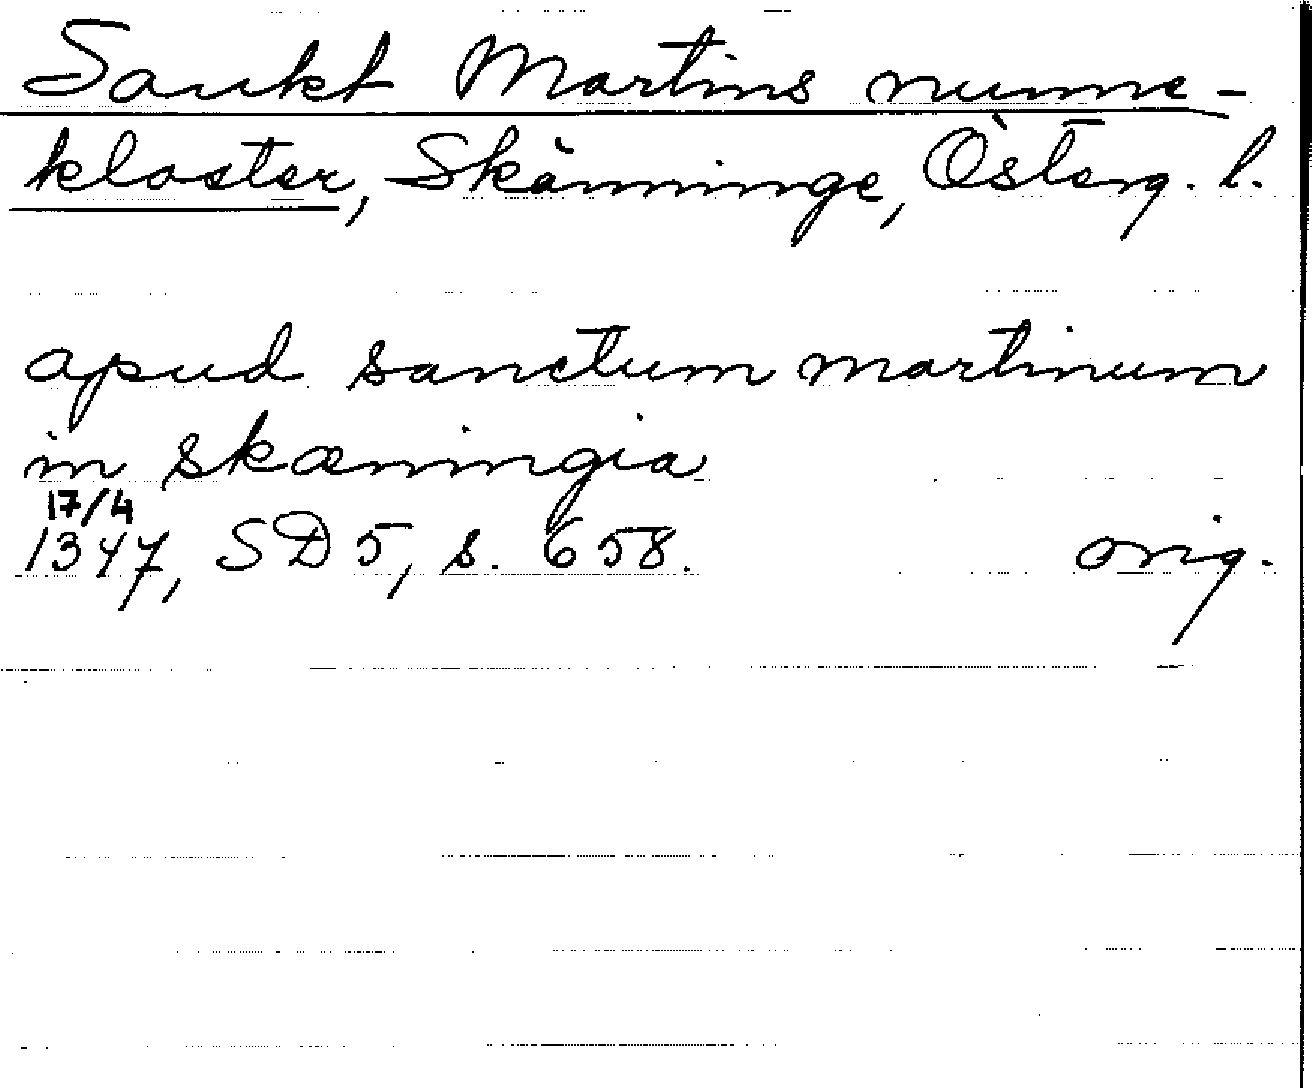 Sankt Martins nunne-
kloster, Skänninge, Österg. l.
apud sanctum martinum
in skæningia
17/4
1347, SD 5, s. 658. orig.